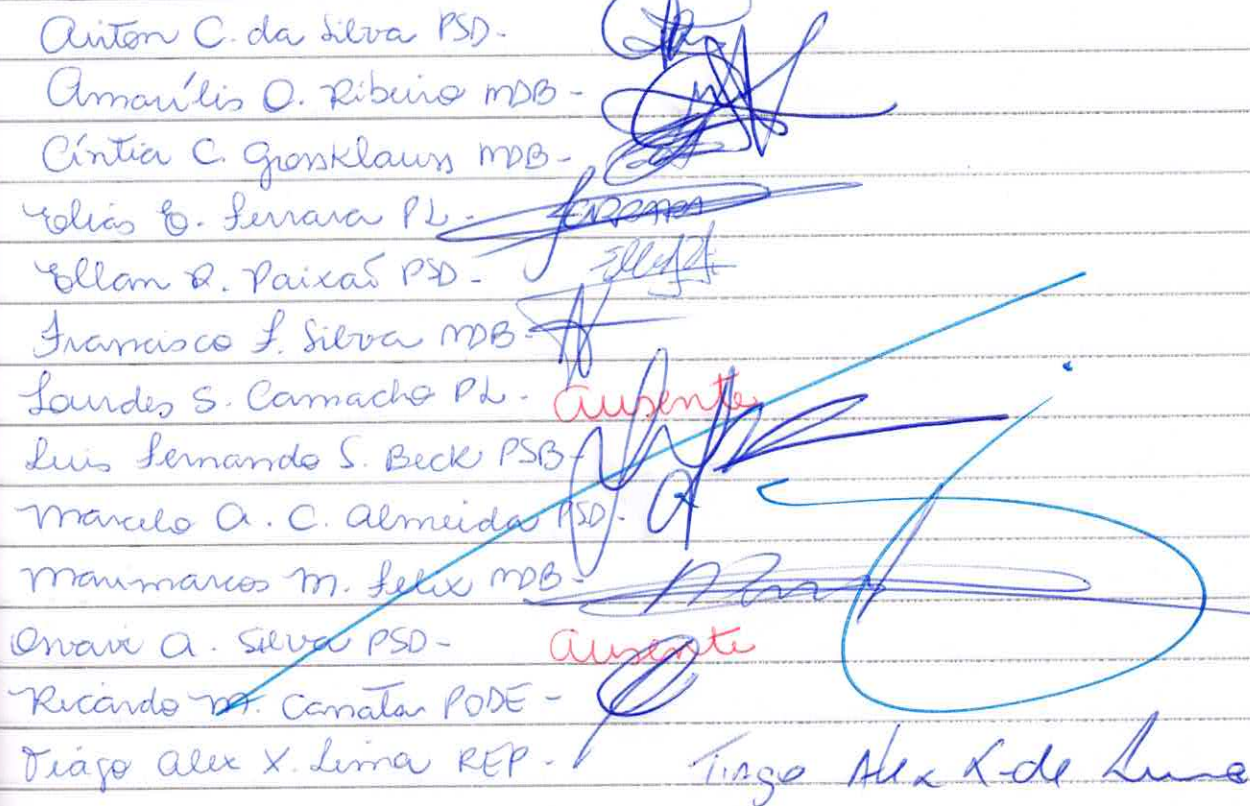 Airton C. da Silva PSD-
Amarílis O. Ribeiro MDB-
Cíntia C. Grossklauss MDB-
Elias E. Ferrara PL- FERRARA
Ellan R. Paixão PSD-
Francisco F. Silva MDB-
Lourdes S. Camacho PL- ausente
Luis Fernando S. Beck PSB-
Marcelo A. C. Almeida PSD-
Marimarcos M. Felix MDB-
A. Silva PSD- ausente
Ricardo M. PODE-
Tiago Alex X. Lima REP- Tiago Alex X de Lima